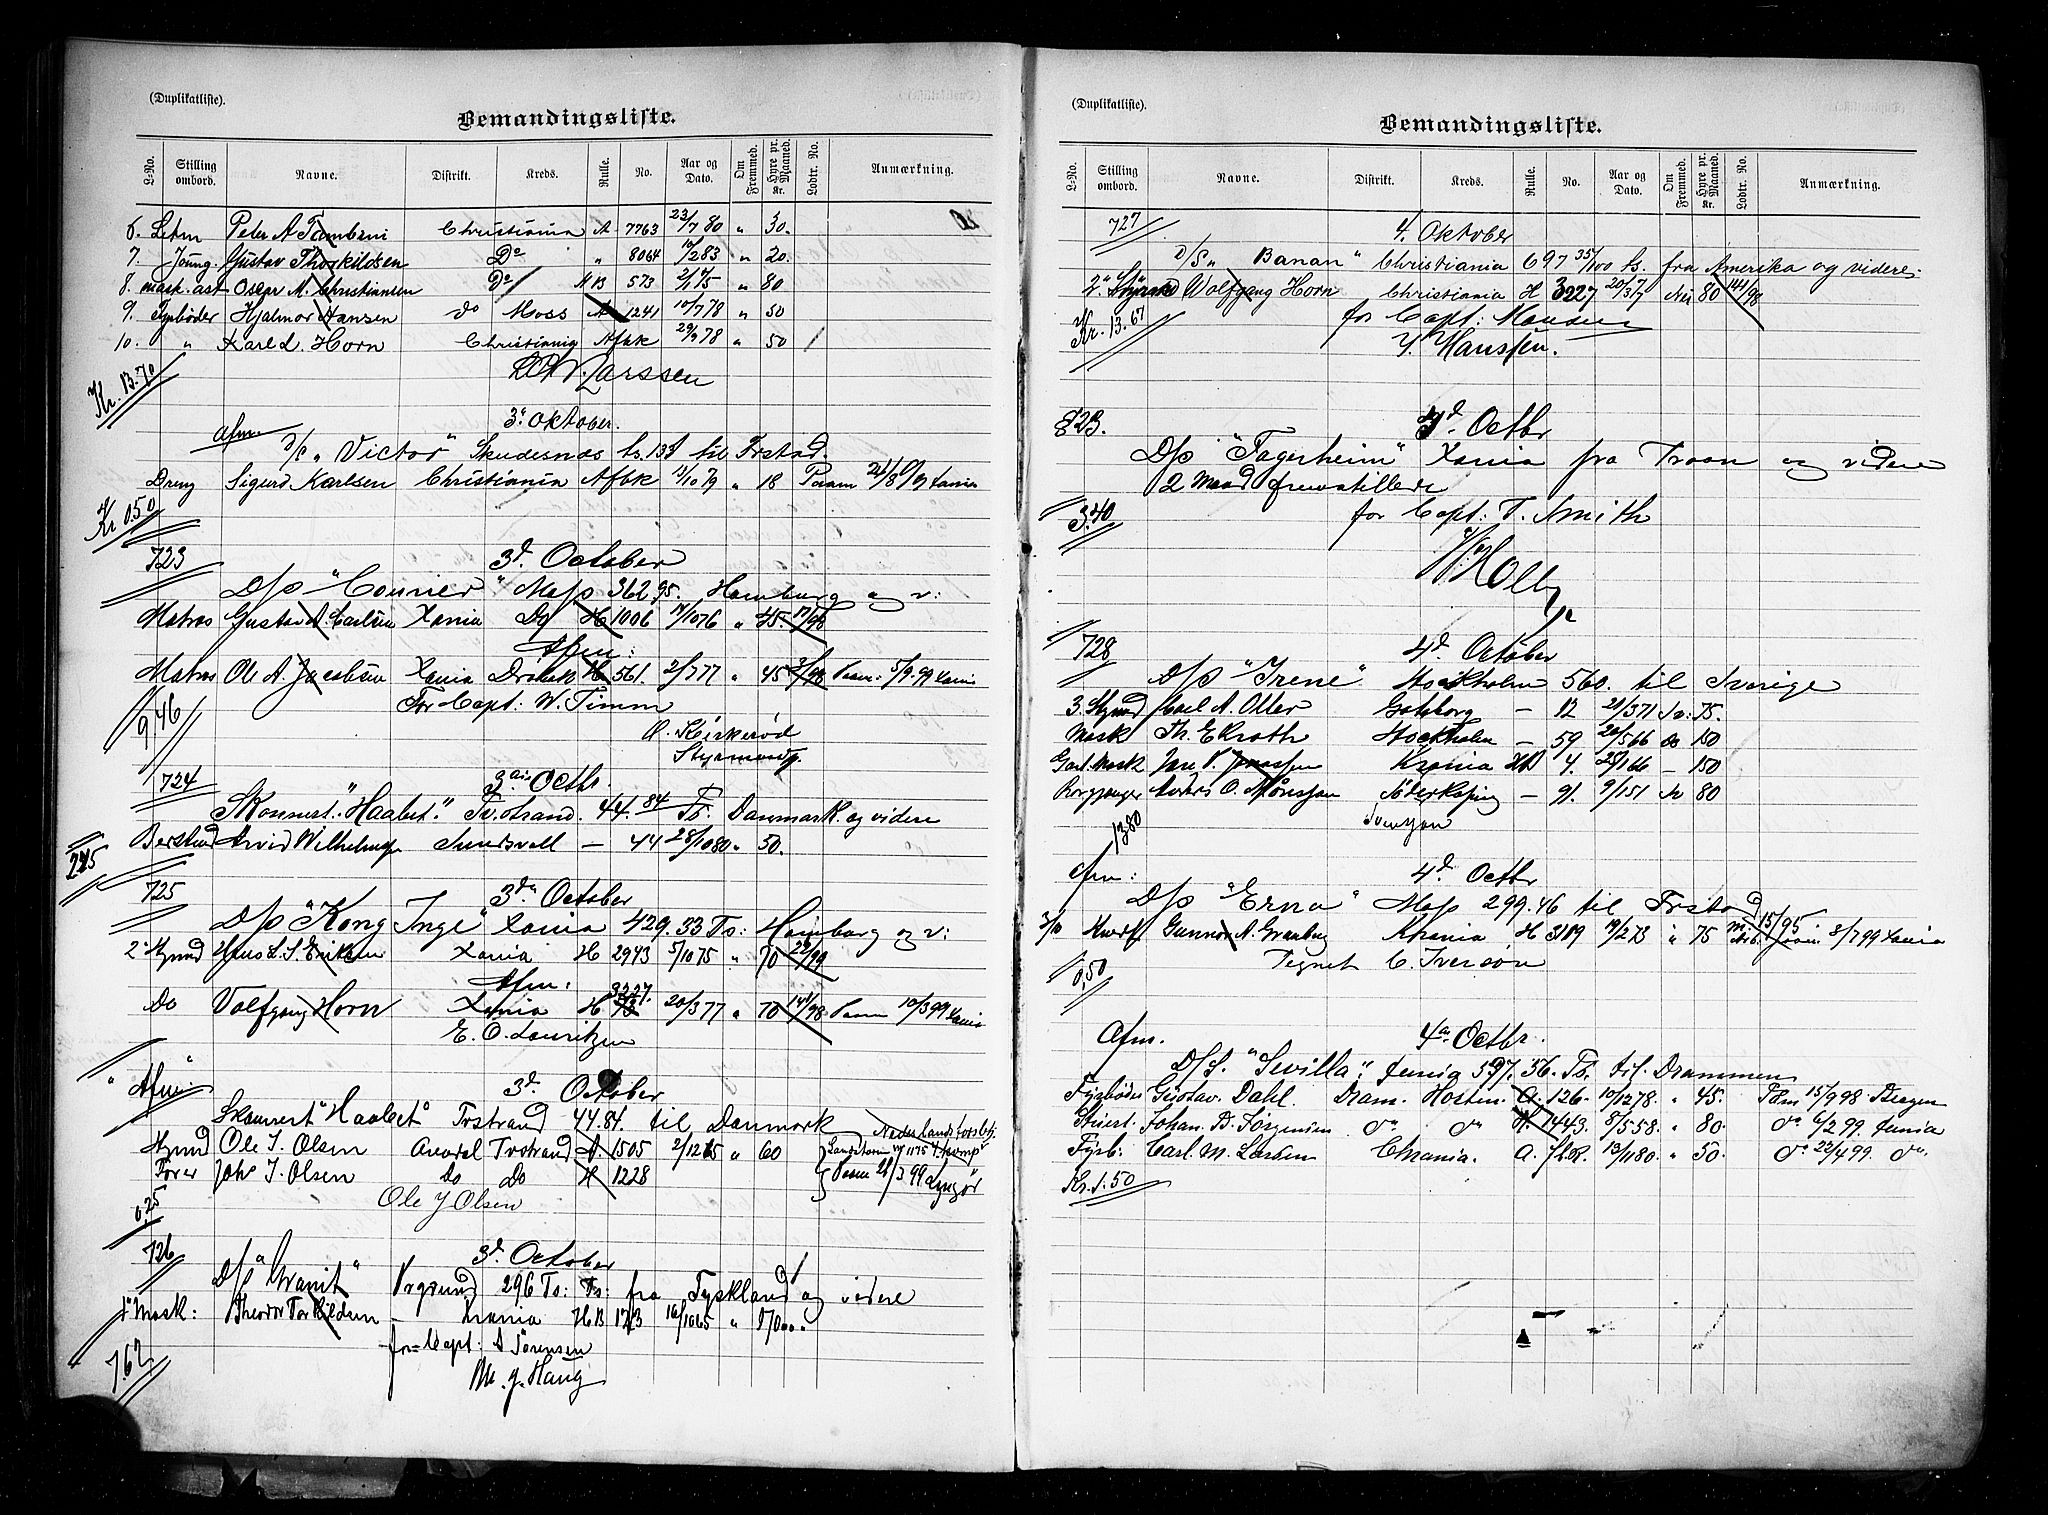 (Duplikatliste).
Bemandingsliste.
L-No. Stilling ombord. Navne. Distrikt. Kreds. Rulle. No. Aar og Dato. Om Fremmed. Hyre pr. Maaned. Kr. Lodtr. No. Anmærkning.
6. Letm Peter A Christiania A 7763 23/7 80 " 30.
7. Joung. Gustav Thorkildsen Do " 8064 83 " 20.
8. mask. ast Oscar M. Christiansen Do HB 573 75 " 80
9. Fyrbøder Hjalmar Hansen do Moss A 1241 10/7 78 " 50
10. " Karl L. Horn Christiania Afbk 29/9 78 " 50
Larssen
Kr. 13.70
3' Oktober.
Afm.
D/S " Victor" Skudesnæs til Frstad.
Dreng Sigurd Karlsen Christiania Afbk 11/10 79 " 18
Kr 0.50
723 3d. October
D/s "Courier" Moss 362.95. Hamburg og v:
Matros Gustav A. Carlsen Xania Do H 1006 76 " 45. 17/98
Afm:
Matros Ole A. Jacobsen Xania Drøbak H 561. 2/7 77 " 45 5/9.99 Xania
For Capt: W. Timm
9,46
O. Kirkerød
Styrmand
724 3die Octbr.
Skonnert. "Haabet". Tvstrand. 44.84 Ts. Danmark og videre
Arvid Wilhelms Sundsvall — 44 28/10 80 " 30.
725 3de October
D/s "Kong Inge" Xania 429.33 Ts: Hamburg og v:
2' Stymd Hans L. S. Eriksen Xania H 2943 5/10 75 " 70 22/99
Afm:
3227.
Do Volfgang Horn Xania H 20/3 77 " 70 141/98 10/3 99 Xania
E. O. Lauritzen
"Afm" 3d. October
Skonnert "Haabet" Tvstrand 44.84. til Danmark
Stymd Ole J. Olsen Arendal Tvstrand A 1505 " 60
Fører Joh. J. Olsen Do Do H 1228 99 Lyngør
Ole J Olsen
0.25
726 3d. October
D/s "Granit" 296 Ts: fra Tyskland og videre
1' Mask: Theodor Torkildsen – Xrania HB 173 16/10 65 "
for Capt. A Sørensen
M. J. Haug
7.62
(Duplikatliste).
Bemandingsliste.
L-No. Stilling ombord. Navne. Distrikt. Kreds. Rulle. No. Aar og Dato. Om Fremmed. Hyre pr. Maaned. Kr. Lodtr. No. Anmærkning.
727 4. Oktober
D/S " Banan " Christiania 697 35/100 ts. fra Amerika og videre.
2' Styrmd Wolfgang Horn Christiania H 3227 20/3 77 Nei 80 141/98
Kr. 13.67 for Capt: Monsen
Y. Hanssen.
823. 4d. Octbr
D/s "Fagerheim" Xania fra Troon og videre
2 Mand fremstillede
3.40 for Capt: T. Smith
728 4d. October
D/s "Irene" Stockholm 560. til Sverige
3. Stymd Carl A. Otter Gøteborg — 12 21/3 71 Sv: 75.
Mask Th. Ekroth Stockholm — 59 20/5 66 do 150
Jonassen Krania HB 4. — 150
Anders O. Monsson Söderköping — 91. 9/1 51 Sv 80
Svensson
13.80
Afm: 4d. Octbr
D/s "Erna" Moss 299.46 til Frstad
Gunnar A. Granberg Krania H 3119 73 " 75 8/7 99 Xania
0,50 Tegnet C. Iversøn
Afm. 4de Octbr.
D/S. "Sevilla". 597.36. Ts. til. Drammen
Fyrbøder Gustav. Dahl. Dram. Hosten. A. 126 10/12 78. " 45. 15/9 98 Bergen
Stuert. Johan. B. Jørgensen do do A. 1443. 8/5 58. " 80. do 6/2 99.
Fyrb: Carl. M. Larsen Chrania. A. 13/11 80. " 50. do 22/4 99. do
Kr. 1.50